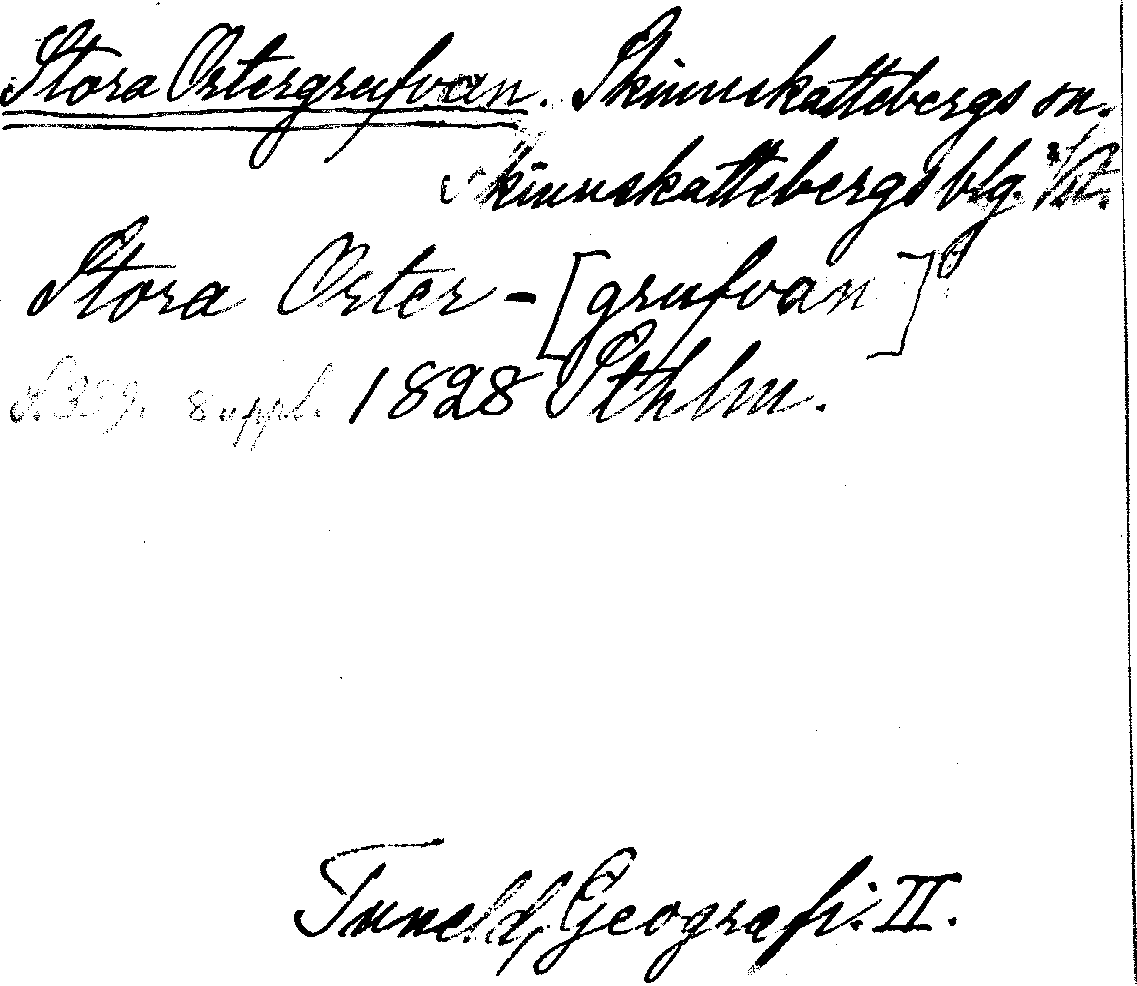 Stora Ostergrufvan. Skinnskattebergs sn.
Skinnskattebergs blg.
Stora Oster-[grufvan]
s. 339. 8 uppl. 1828 Sthlm.
Tuneld, Geografi. II.